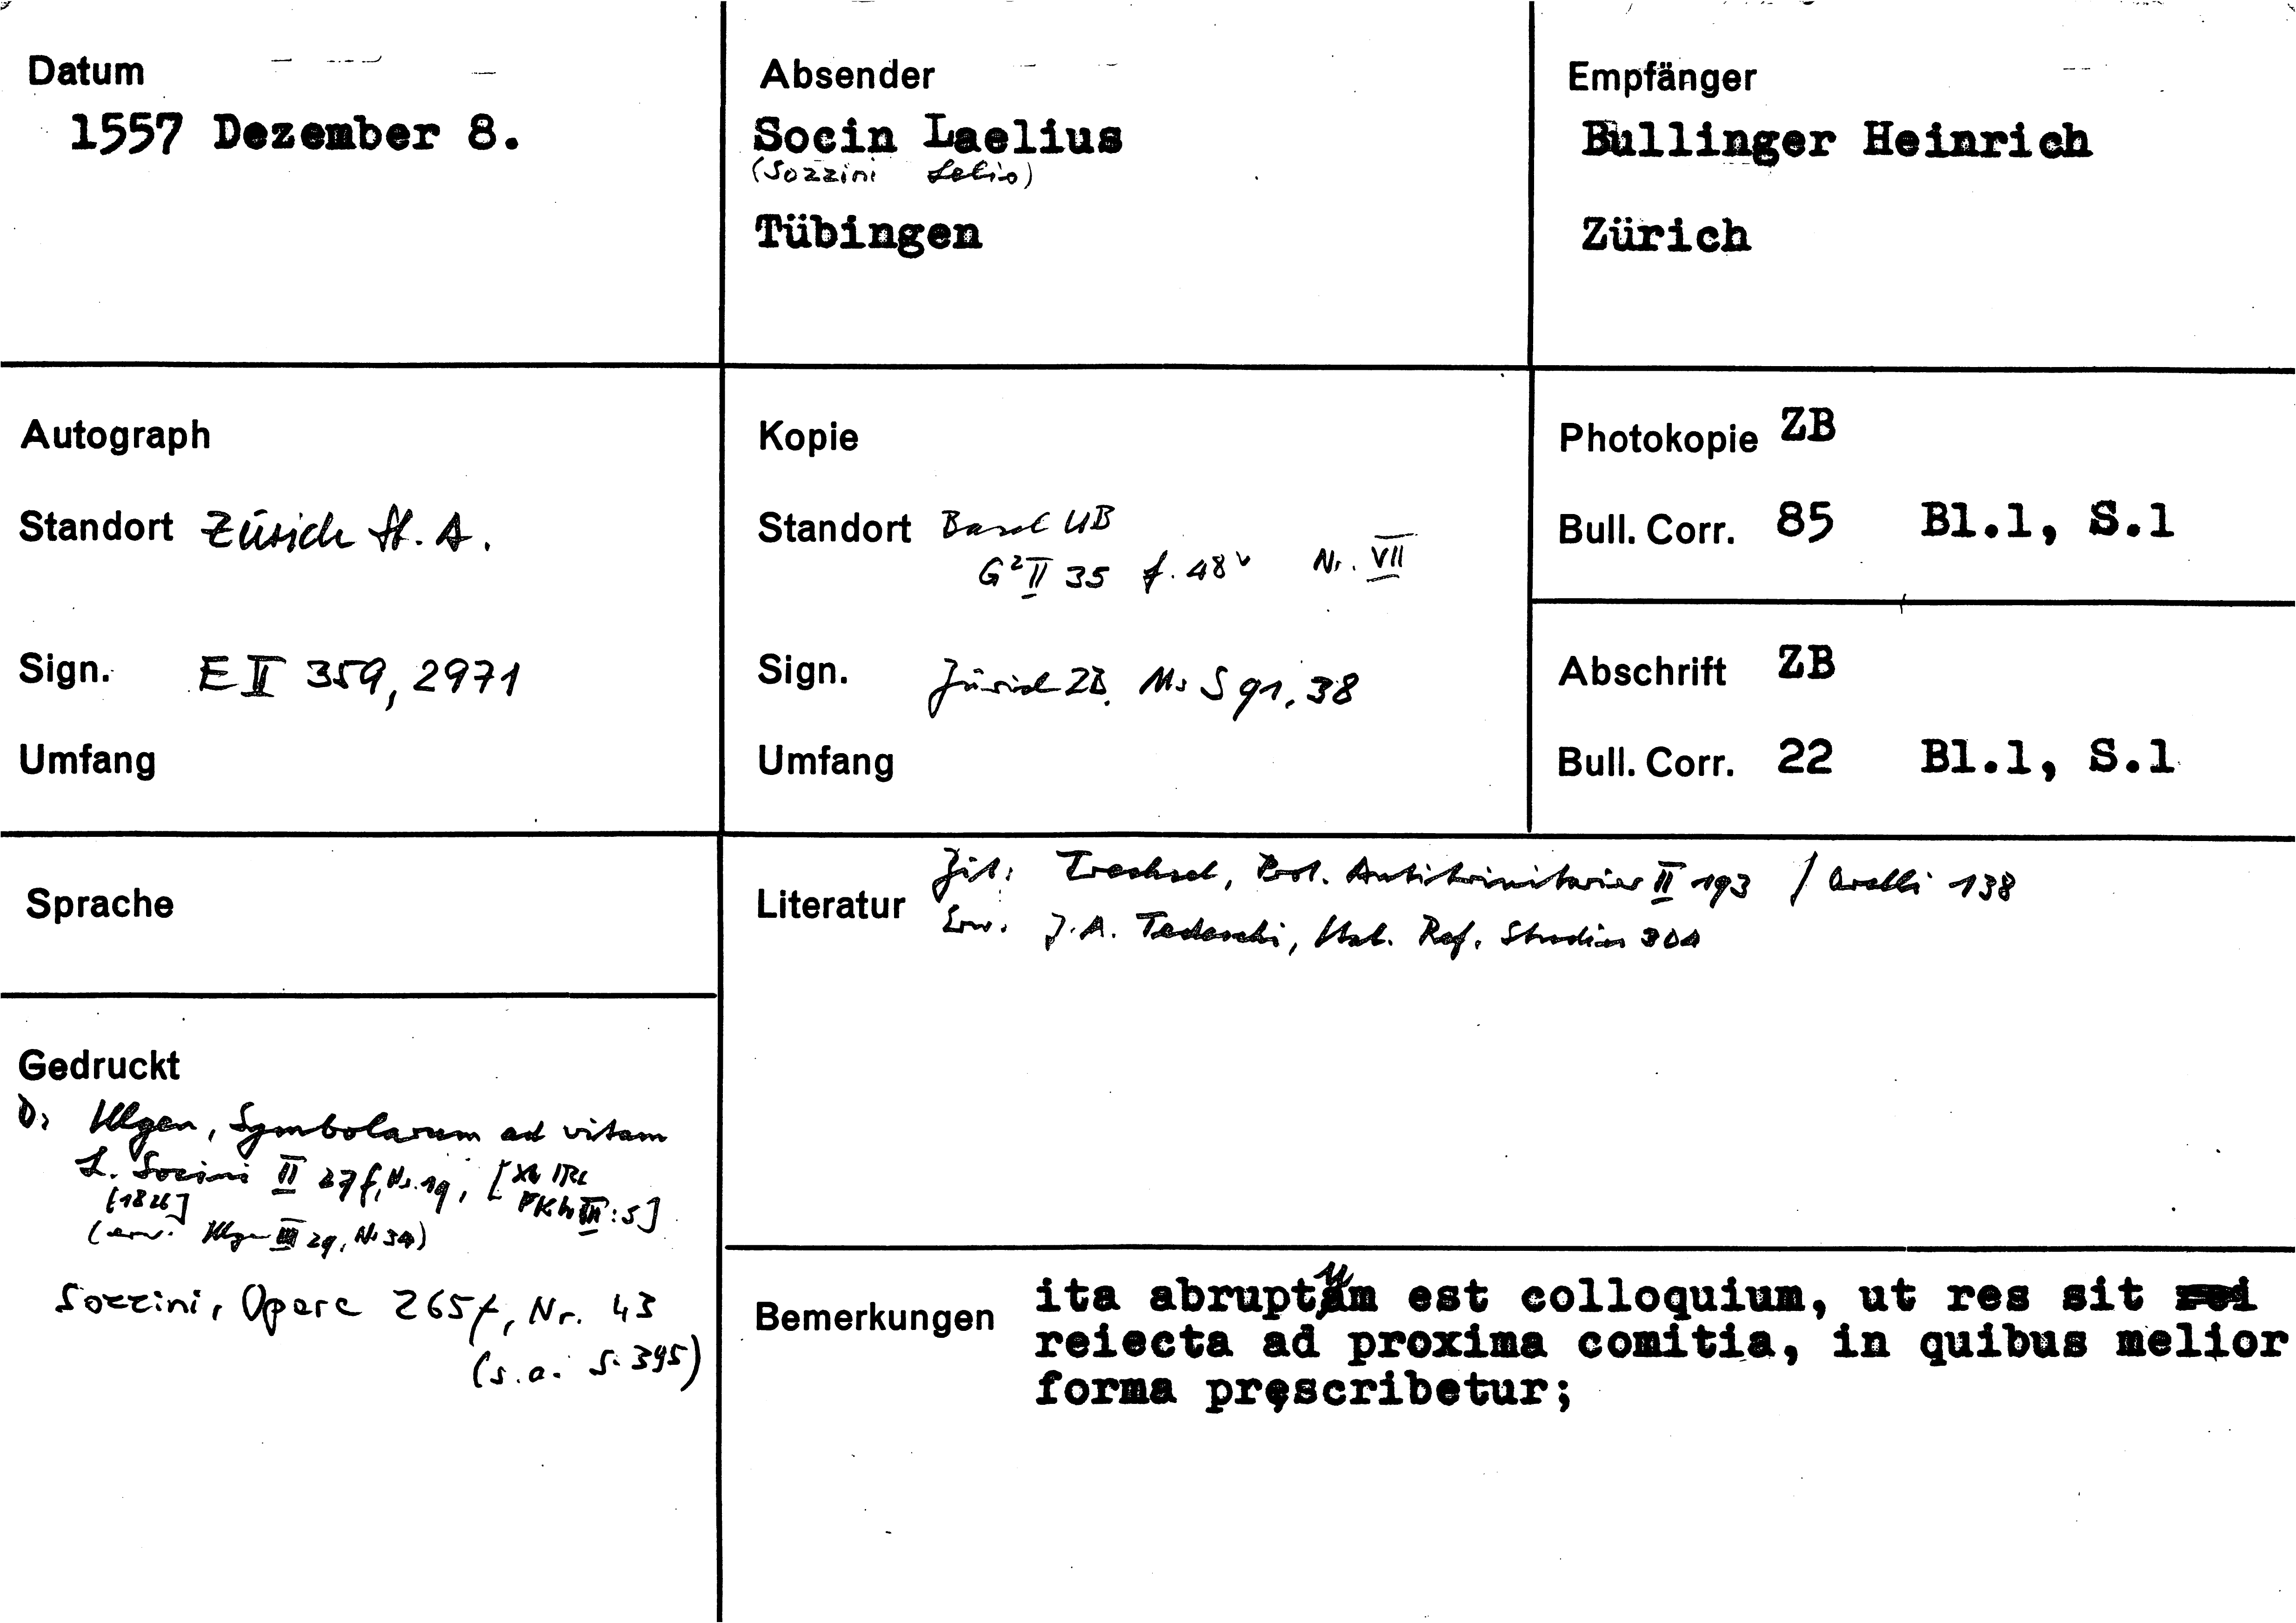 Datum
1557 Dezember 8.
Absender
Socin Laelius
(Sozzini Lelio)
Tübingen
Empfänger
Bullinger Heinrich
Zürich
Autograph
Standort Zürich St. A.
Sign. E II 359, 2971
Umfang
Kopie
Standort Basel UB
G² II 35 f. 48v Nr. VII
Sign. Zürich ZB. Ms S 91, 38
Umfang
Photokopie ZB
Bull. Corr. 85 Bl.1, S.1
Abschrift ZB
Bull. Corr. 22 Bl.1, S.1
Sprache
Literatur Zit: Trechsel, Prot. Antitrinitarier II 193 / Orelli 138
Erw. J.A. Tedeschi, Ital. Ref. Studies 301
Gedruckt
D: Illgen, Symbolarum ad vitam
L. Socini II 27f, Nr. 19,
[1826]
(erw. Illgen III 29, Nr 34)
Sozzini, Opere 265f, Nr. 43
(s.a. S. 395)
Bemerkungen ita abruptum est colloquium, ut res sit
reiecta ad proxima comitia, in quibus melior
forma pręscribetur;